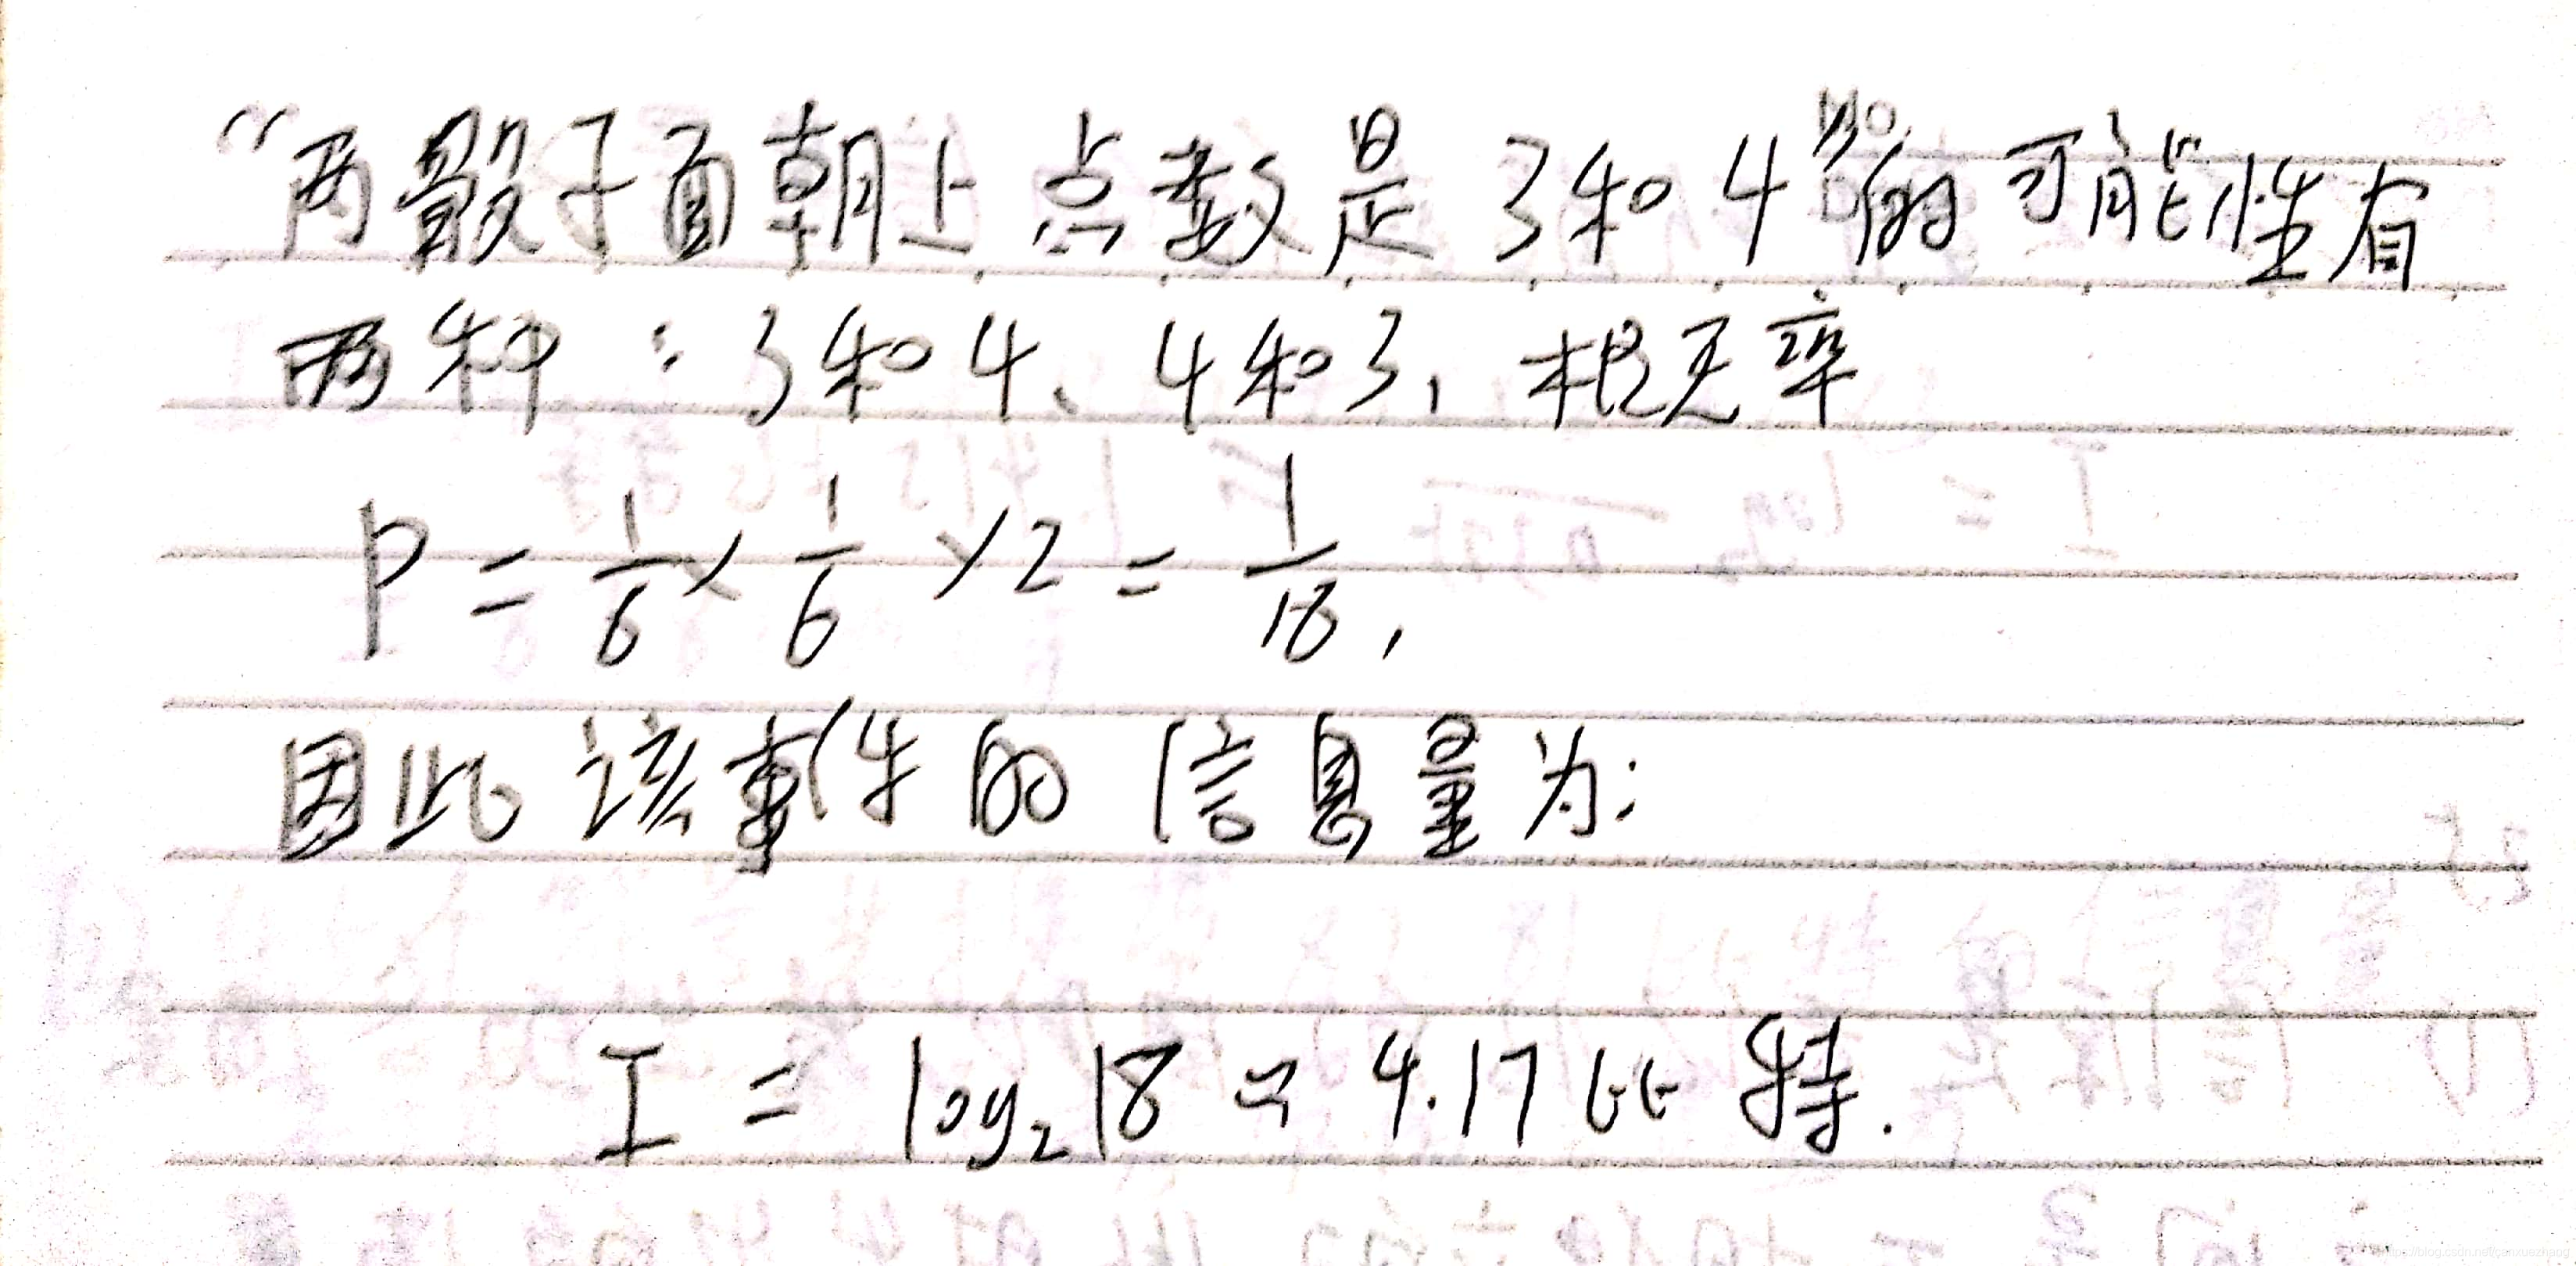 “两骰子面朝上点数是3和4”的可能性有
两种：3和4、4和3，概率
P = 1/6 × 1/6 × 2 = 1/18，
因此该事件的信息量为：
I = log₂18 ≈ 4.17比特.
https://blog.csdn.net/canxuezhang